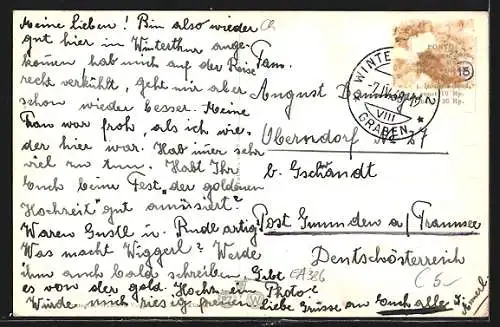 Meine Lieben! Bin also wieder
gut hier in Winterthur ange-
kommen hab mich auf der Reise
recht verkühlt, geht mir aber
schon wieder besser. Meine
Frau war froh, als ich wie-
der hier war. Hab hier sehr
viel zu tun. Habt Ihr
Euch beim Fest "der goldenen
Hochzeit" gut amüsiert?
Waren Gustl u. Rudl artig
Was macht Wiggerl? Werde
ihm auch bald schreiben. Gibt
es von der gold. Hochz. ein Photo?
Würde mich riesig freuen
Liebe Grüsse an Euch alle
Fam.
August
Oberndorf No 27
b. Gschwandt
Post Gmunden a/Traunsee
Deutschösterreich
WINTERTHUR 2
VIII
GRABEN
15
EA326
C 5-